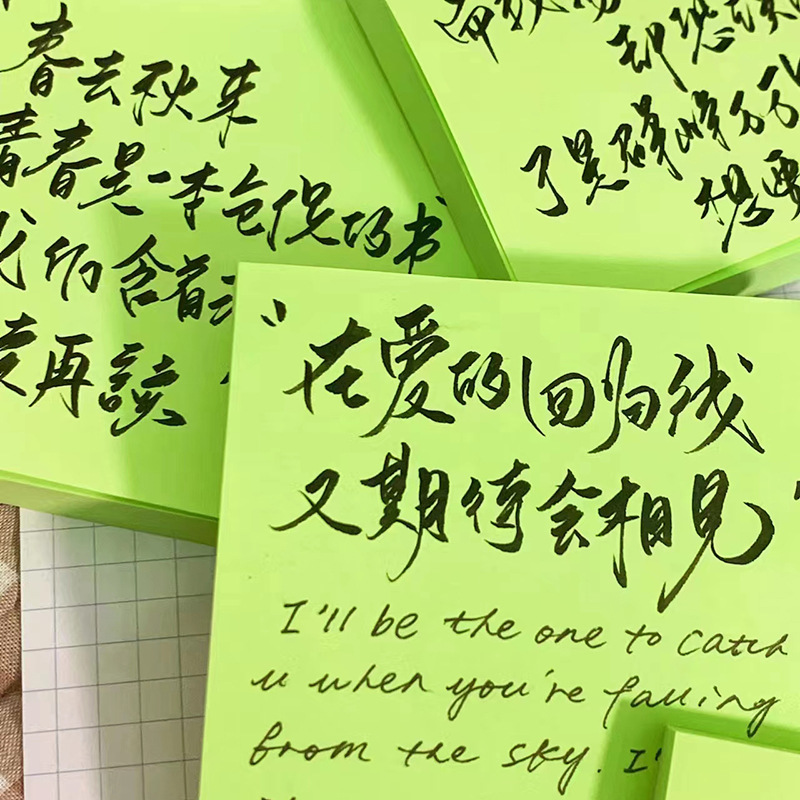 春去秋来
青春是一本仓促的书
我们含着
再讀
却恐
想要
"在爱的回归线
又期待会相见"
I'll be the one to catch
u when you're falling
from the sky. I'